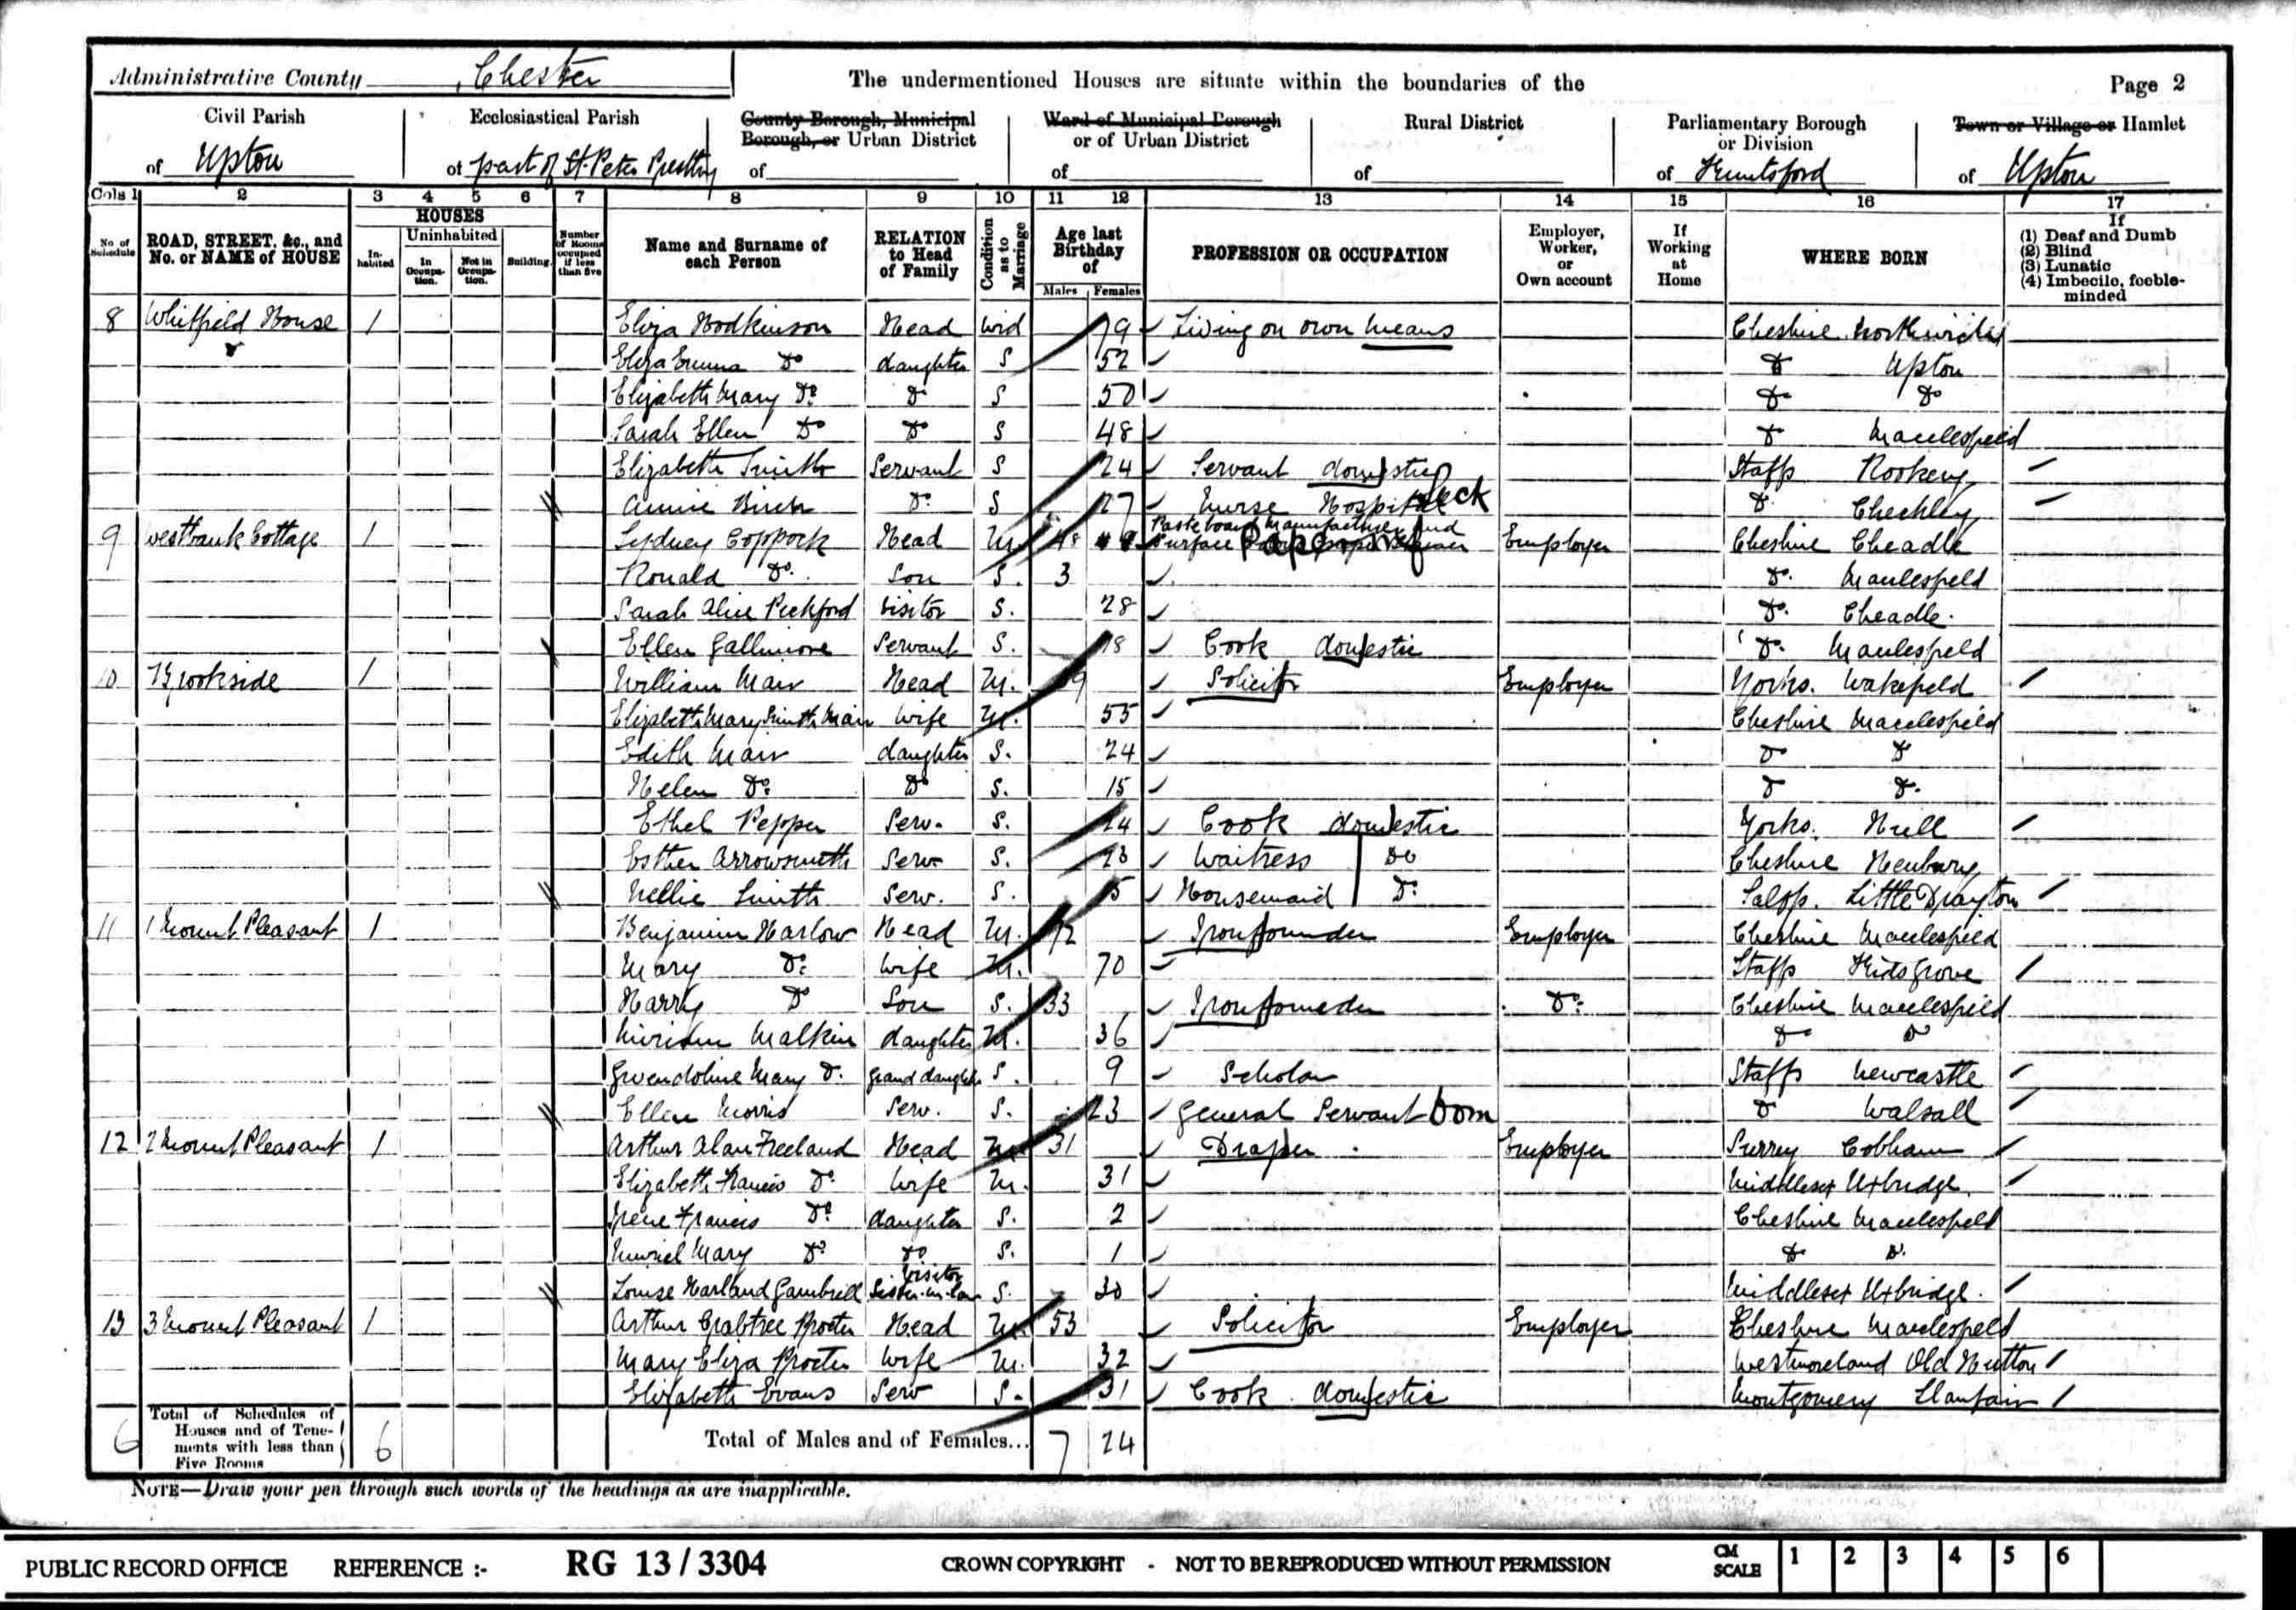 Administrative County Chester The undermentioned Houses are situate within the boundaries of the Page 2
Civil Parish Ecclesiastical Parish County Borough, Municipal Borough, or Urban District Ward of Municipal Borough or of Urban District Rural District Parliamentary Borough or Division Town or Village or Hamlet
of Upton of part of St. Peter of of of of Knutsford of Upton
Cols 1 2 3 4 5 6 7 8 9 10 11 12 13 14 15 16 17
No of Schedule ROAD, STREET, &c., and No. or NAME of HOUSE HOUSES Inhabited Uninhabited In Occupation. Not in Occupation. Building. Number of Rooms occupied if less than five Name and Surname of each Person RELATION to Head of Family Condition as to Marriage Age last Birthday of Males Females PROFESSION OR OCCUPATION Employer, Worker, or Own account If Working at Home WHERE BORN If (1) Deaf and Dumb (2) Blind (3) Lunatic (4) Imbecile, feeble-minded
8 Whitfield House 1 Eliza Hodkinson Head Wid 79 Living on own means Cheshire Northwich
Do Eliza Emma Do daughter S 52 Do Upton
Elizabeth Mary Do Do S 50 Do Do
Sarah Ellen Do Do S 48 Do Macclesfield
Elizabeth Smith Servant S 24 Servant domestic Staffs Rookery
Annie Birch Do S 27 Nurse Hospital Do Checkley
9 Westbank Cottage 1 Sydney Coppock Head M. 48 Pasteboard Manufacturer and Surface Paper Mf Employer Cheshire Cheadle
Ronald Do. Son S. 3 Do. Macclesfield
Sarah Alice Peckford Visitor S. 28 Do. Cheadle.
Ellen Gallimore Servant S. 18 Cook domestic Do. Macclesfield
10 Brookside 1 William Mair Head M. Solicitor Employer Yorks. Wakefield
Elizabeth Mary Smith Mair Wife M. 55 Cheshire Macclesfield
Edith Mair daughter S. 24 Do Do
Helen Do. Do S. 15 Do Do.
Ethel Pepper Serv. S. 24 Cook domestic Yorks. Hull
Esther Arrowsmith Serv S. 23 Waitress Do Cheshire Henbury
Nellie Smith Serv. S. 15 Housemaid Do. Salop. Little Drayton
11 1 Mount Pleasant 1 Benjamin Harlow Head M. 72 Ironfounder Employer Cheshire Macclesfield
Mary Do. Wife M. 70 Staffs Kidsgrove
Harry Do Son S. 33 Ironfounder Do. Cheshire Macclesfield
Miriam Malkin daughter M. 36 Do Do
Gwendoline Mary Do. Grand daughter S. 9 Scholar Staffs Newcastle
Ellen Morris Serv. S. 23 General Servant Dom Do Walsall
12 2 Mount Pleasant 1 Arthur Alan Freeland Head M. 31 Draper Employer Surrey Cobham
Elizabeth Francis Do. Wife M. 31 Middlesex Uxbridge.
Irene Francis Do. daughter S. 2 Cheshire Macclesfield
Muriel Mary Do. Do S. 1 Do Do.
Louise Harland Gambrill Visitor Sister-in-law S. 30 Middlesex Uxbridge.
13 3 Mount Pleasant 1 Arthur Crabtree Procter Head M. 53 Solicitor Employer Cheshire Macclesfield
Mary Eliza Procter Wife M. 32 Westmoreland Old Hutton
Elizabeth Evans Serv S. 31 Cook domestic Montgomery Llanfair
6 Total of Schedules of Houses and of Tenements with less than Five Rooms 6 Total of Males and of Females... 7 24
NOTE—Draw your pen through such words of the headings as are inapplicable.
PUBLIC RECORD OFFICE REFERENCE :- RG 13 / 3304 CROWN COPYRIGHT - NOT TO BE REPRODUCED WITHOUT PERMISSION CM SCALE 1 2 3 4 5 6